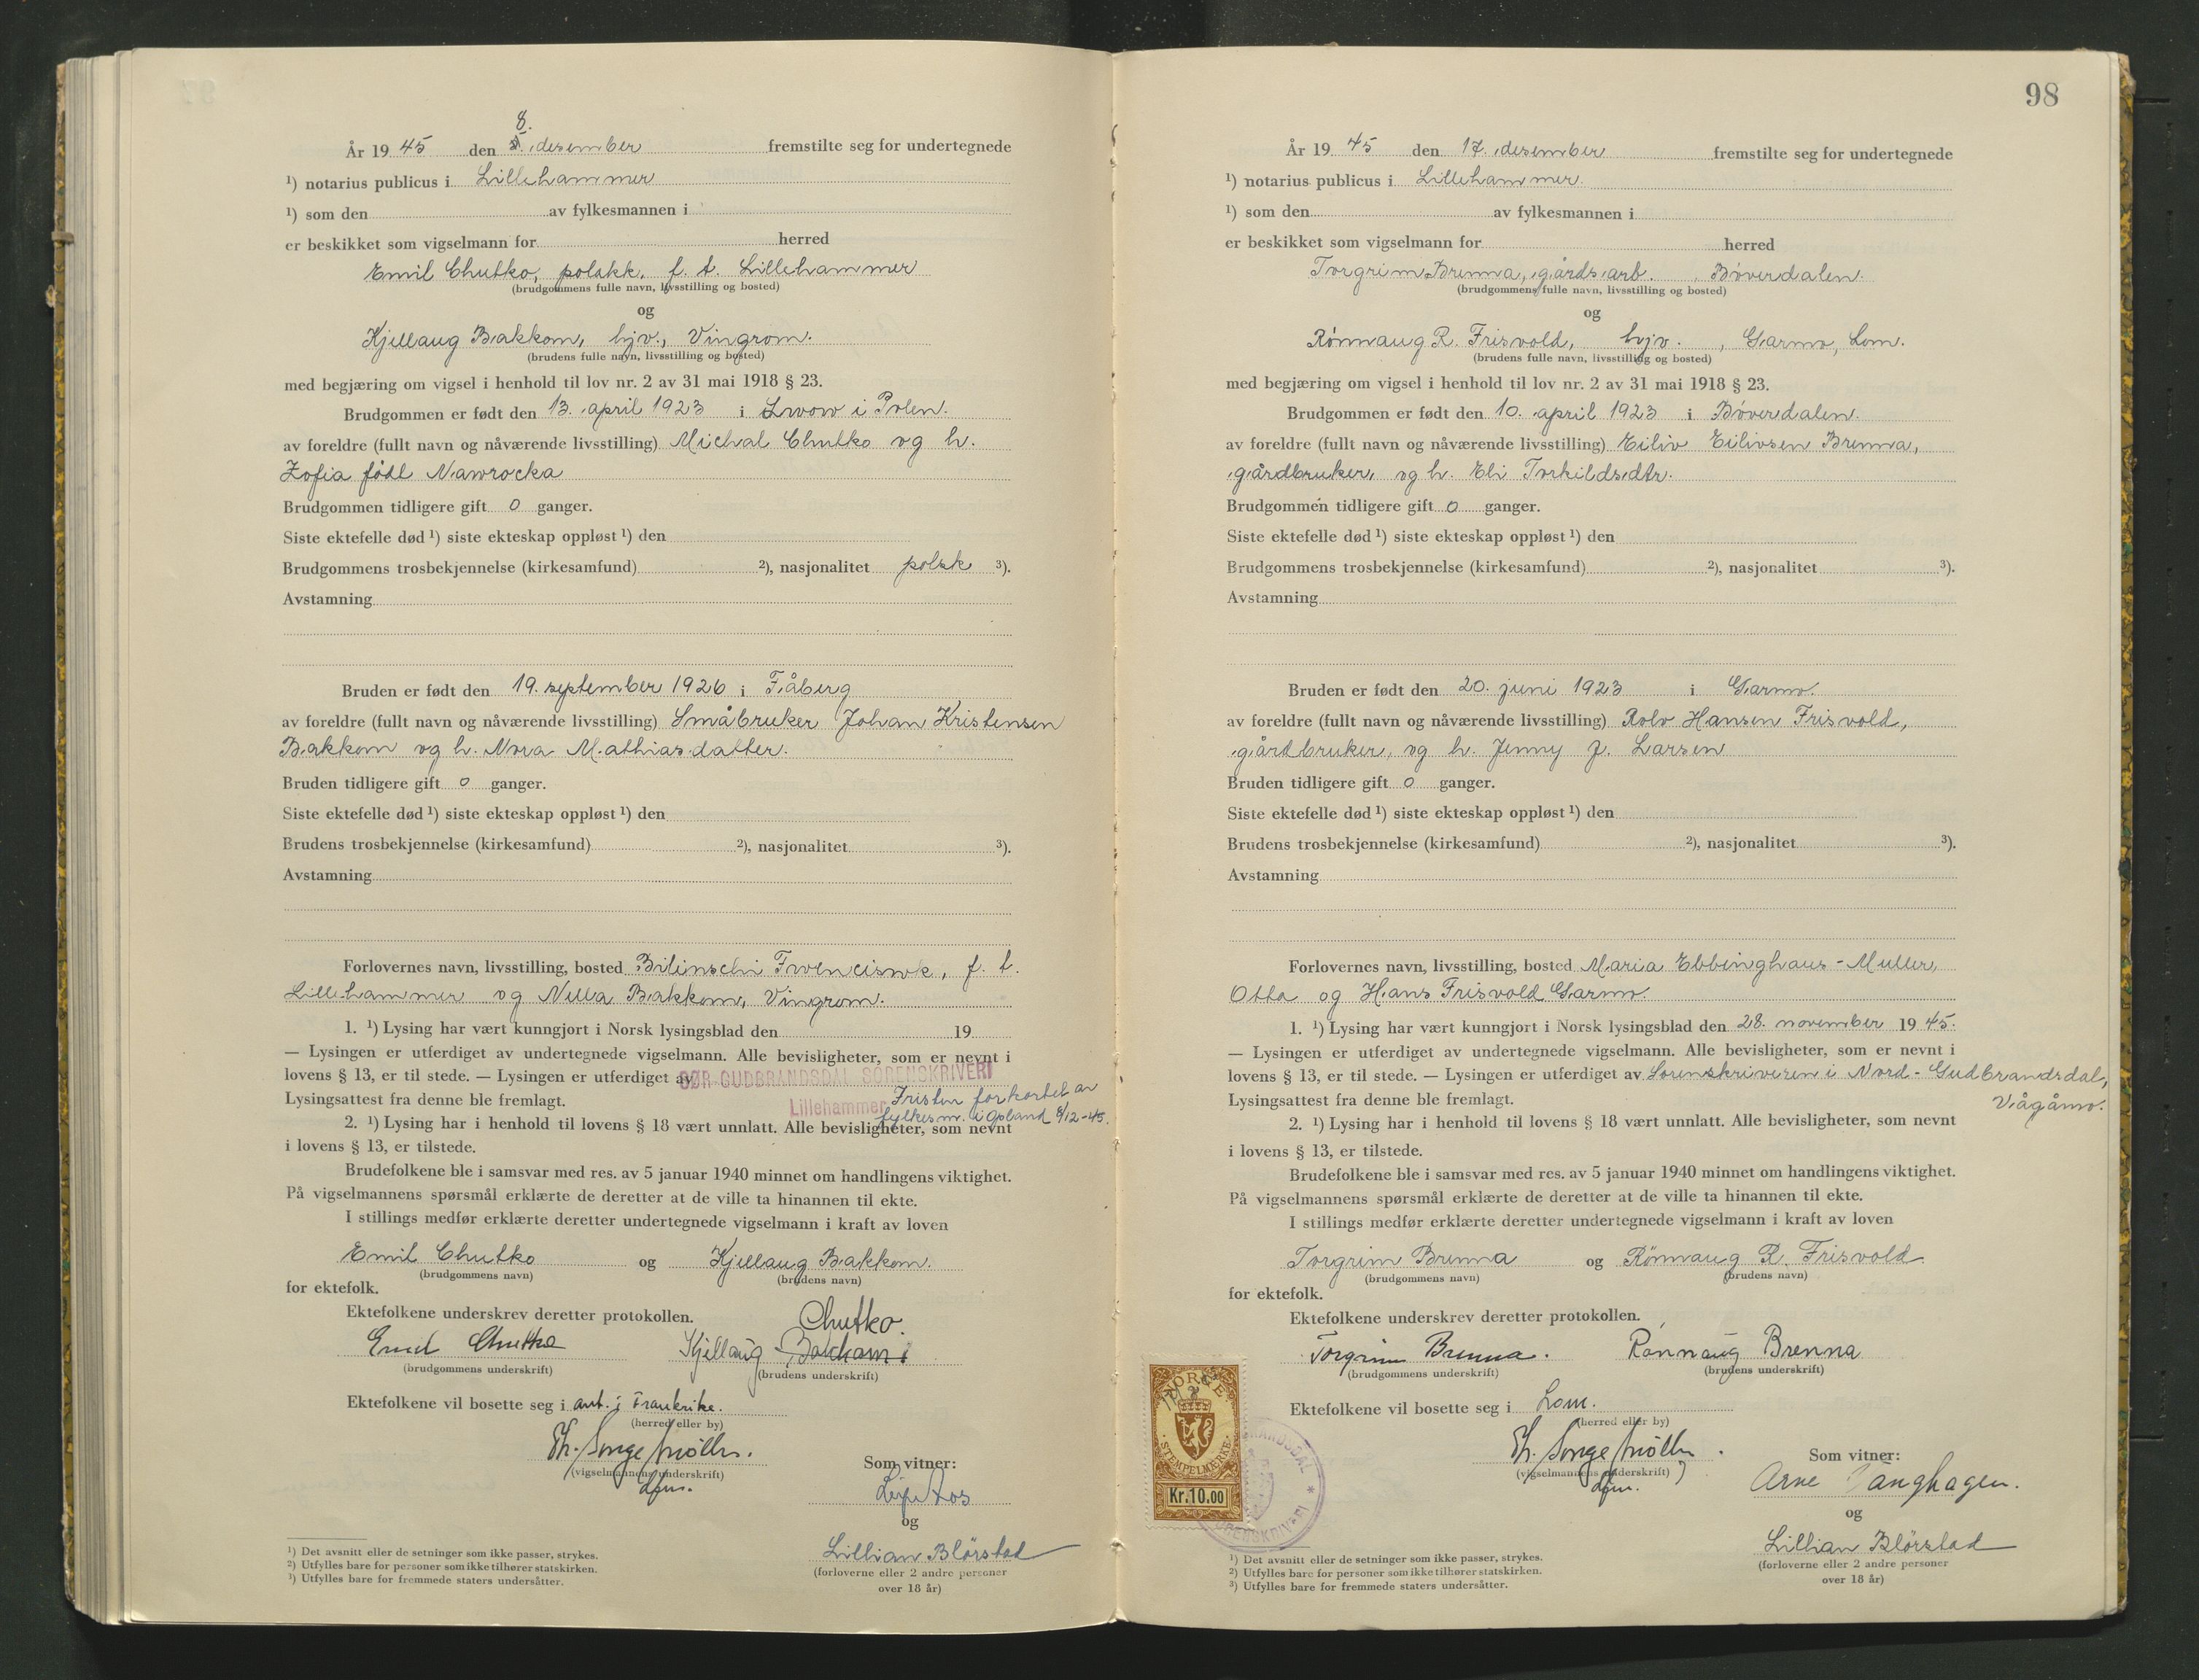 8.
År 1945 den 5. desember fremstilte seg for undertegnede
¹) notarius publicus i Lillehammer
¹) som den av fylkesmannen i
er beskikket som vigselmann for herred
Emil Chutko, polakk, f. t. Lillehammer
(brudgommens fulle navn, livsstilling og bosted)
og
Kjellaug Bakkom, hjv., Vingrom.
(brudens fulle navn, livsstilling og bosted)
med begjæring om vigsel i henhold til lov nr. 2 av 31 mai 1918 § 23.
Brudgommen er født den 13. april 1923 i Lwow i Polen.
av foreldre (fullt navn og nåværende livsstilling) Michal Chutko og h.
Zofia född Nawrocka
Brudgommen tidligere gift 0 ganger.
Siste ektefelle død ¹) siste ekteskap oppløst ¹) den
Brudgommens trosbekjennelse (kirkesamfund) ²), nasjonalitet polsk ³).
Avstamning
Bruden er født den 19. september 1926 i Fåberg
av foreldre (fullt navn og nåværende livsstilling) Småbruker Johan Kristensen
Bakkom og h. Nora Mathiasdatter.
Bruden tidligere gift 0 ganger.
Siste ektefelle død ¹) siste ekteskap oppløst ¹) den
Brudens trosbekjennelse (kirkesamfund) ²), nasjonalitet ³).
Avstamning
Forlovernes navn, livsstilling, bosted Bilinschi f. t.
Lillehammer og Nilla Bakkom, Vingrom.
1. ¹) Lysing har vært kunngjort i Norsk lysingsblad den 19
— Lysingen er utferdiget av undertegnede vigselmann. Alle bevisligheter, som er nevnt i
lovens § 13, er til stede. — Lysingen er utferdiget av SØR-GUDBRANDSDAL SORENSKRIVERI
Lysingsattest fra denne ble fremlagt. Lillehammer Fristen forkortet av
fylkesm. i Opland 8/12-45.
2. ¹) Lysing har i henhold til lovens § 18 vært unnlatt. Alle bevisligheter, som nevnt
i lovens § 13, er tilstede.
Brudefolkene ble i samsvar med res. av 5 januar 1940 minnet om handlingens viktighet.
På vigselmannens spørsmål erklærte de deretter at de ville ta hinannen til ekte.
I stillings medfør erklærte deretter undertegnede vigselmann i kraft av loven
Emil Chutko og Kjellaug Bakkom.
(brudgommens navn) (brudens navn)
for ektefolk.
Ektefolkene underskrev deretter protokollen. Chutko.
Emil Chutko Kjellaug Bakkom
(brudgommens underskrift) (brudens underskrift)
Ektefolkene vil bosette seg i ant. i Frankrike.
(herred eller by)
Th. Songe Møller.
(vigselmannens underskrift) Som vitner:
dfm.
og
Lillian Blörstad
(forloverne eller 2 andre personer
over 18 år)
¹) Det avsnitt eller de setninger som ikke passer, strykes.
²) Utfylles bare for personer som ikke tilhører statskirken.
³) Utfylles bare for fremmede staters undersåtter.
98
År 1945 den 17. desember fremstilte seg for undertegnede
¹) notarius publicus i Lillehammer.
¹) som den av fylkesmannen i
er beskikket som vigselmann for herred
Torgrim Brenna, gårdsarb., Böverdalen.
(brudgommens fulle navn, livsstilling og bosted)
og
Rönnaug R. Frisvold, hjv., Garmo, Lom.
(brudens fulle navn, livsstilling og bosted)
med begjæring om vigsel i henhold til lov nr. 2 av 31 mai 1918 § 23.
Brudgommen er født den 10. april 1923 i Böverdalen.
av foreldre (fullt navn og nåværende livsstilling) Eiliv Eilivsen Brenna,
gårdbruker, og h. Eli Torkildsdtr.
Brudgommen tidligere gift 0 ganger.
Siste ektefelle død ¹) siste ekteskap oppløst ¹) den
Brudgommens trosbekjennelse (kirkesamfund) ²), nasjonalitet ³).
Avstamning
Bruden er født den 20. juni 1923 i Garmo.
av foreldre (fullt navn og nåværende livsstilling) Rolv Hansen Frisvold,
gårdbruker, og h. Jenny J. Larsen
Bruden tidligere gift 0 ganger.
Siste ektefelle død ¹) siste ekteskap oppløst ¹) den
Brudens trosbekjennelse (kirkesamfund) ²), nasjonalitet ³).
Avstamning
Forlovernes navn, livsstilling, bosted Maria Ebbinghaus-Muller,
Otta og Hans Frisvold Garmo.
1. ¹) Lysing har vært kunngjort i Norsk lysingsblad den 28. november 1945.
— Lysingen er utferdiget av undertegnede vigselmann. Alle bevisligheter, som er nevnt i
lovens § 13, er til stede. — Lysingen er utferdiget av Sorenskriveren i Nord-Gudbrandsdal,
Lysingsattest fra denne ble fremlagt. Vågåmo.
2. ¹) Lysing har i henhold til lovens § 18 vært unnlatt. Alle bevisligheter, som nevnt
i lovens § 13, er tilstede.
Brudefolkene ble i samsvar med res. av 5 januar 1940 minnet om handlingens viktighet.
På vigselmannens spørsmål erklærte de deretter at de ville ta hinannen til ekte.
I stillings medfør erklærte deretter undertegnede vigselmann i kraft av loven
Torgrim Brenna og Rönnaug R. Frisvold
(brudgommens navn) (brudens navn)
for ektefolk.
Ektefolkene underskrev deretter protokollen.
Torgrim Brenna. Rønnaug Brenna
(brudgommens underskrift) (brudens underskrift)
Ektefolkene vil bosette seg i Lom.
(herred eller by)
Th. Songe Møller.
(vigselmannens underskrift) Som vitner:
dfm.
Arne
og
Lillian Blörstad
(forloverne eller 2 andre personer
over 18 år)
NORGE
STEMPELMÆRKE
Kr.10.00
SORENSKRIVERI
¹) Det avsnitt eller de setninger som ikke passer, strykes.
²) Utfylles bare for personer som ikke tilhører statskirken.
³) Utfylles bare for fremmede staters undersåtter.